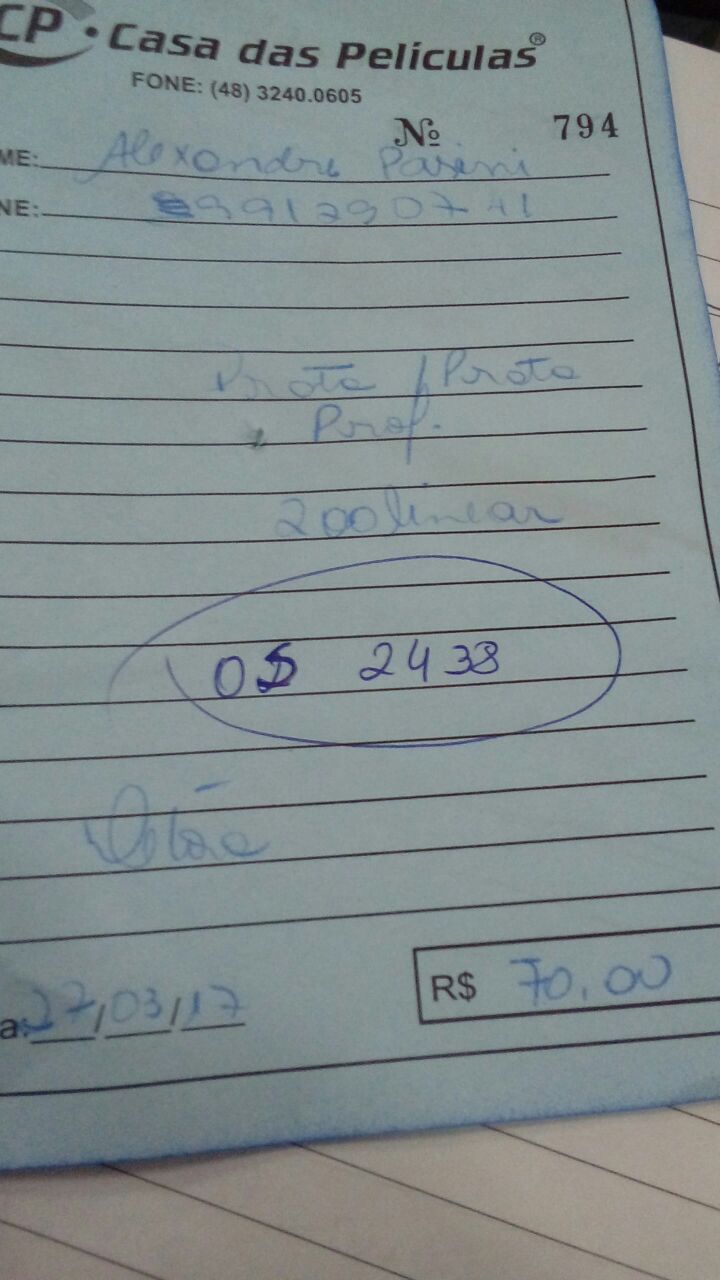 CP · Casa das Películas®
FONE: (48) 3240.0605
Nº 794
ME: Alexandre Parini
NE: 991290741
Prata / Prata
Prof.
200 linear
OS 2438
a: 27/03/17
R$ 70,00